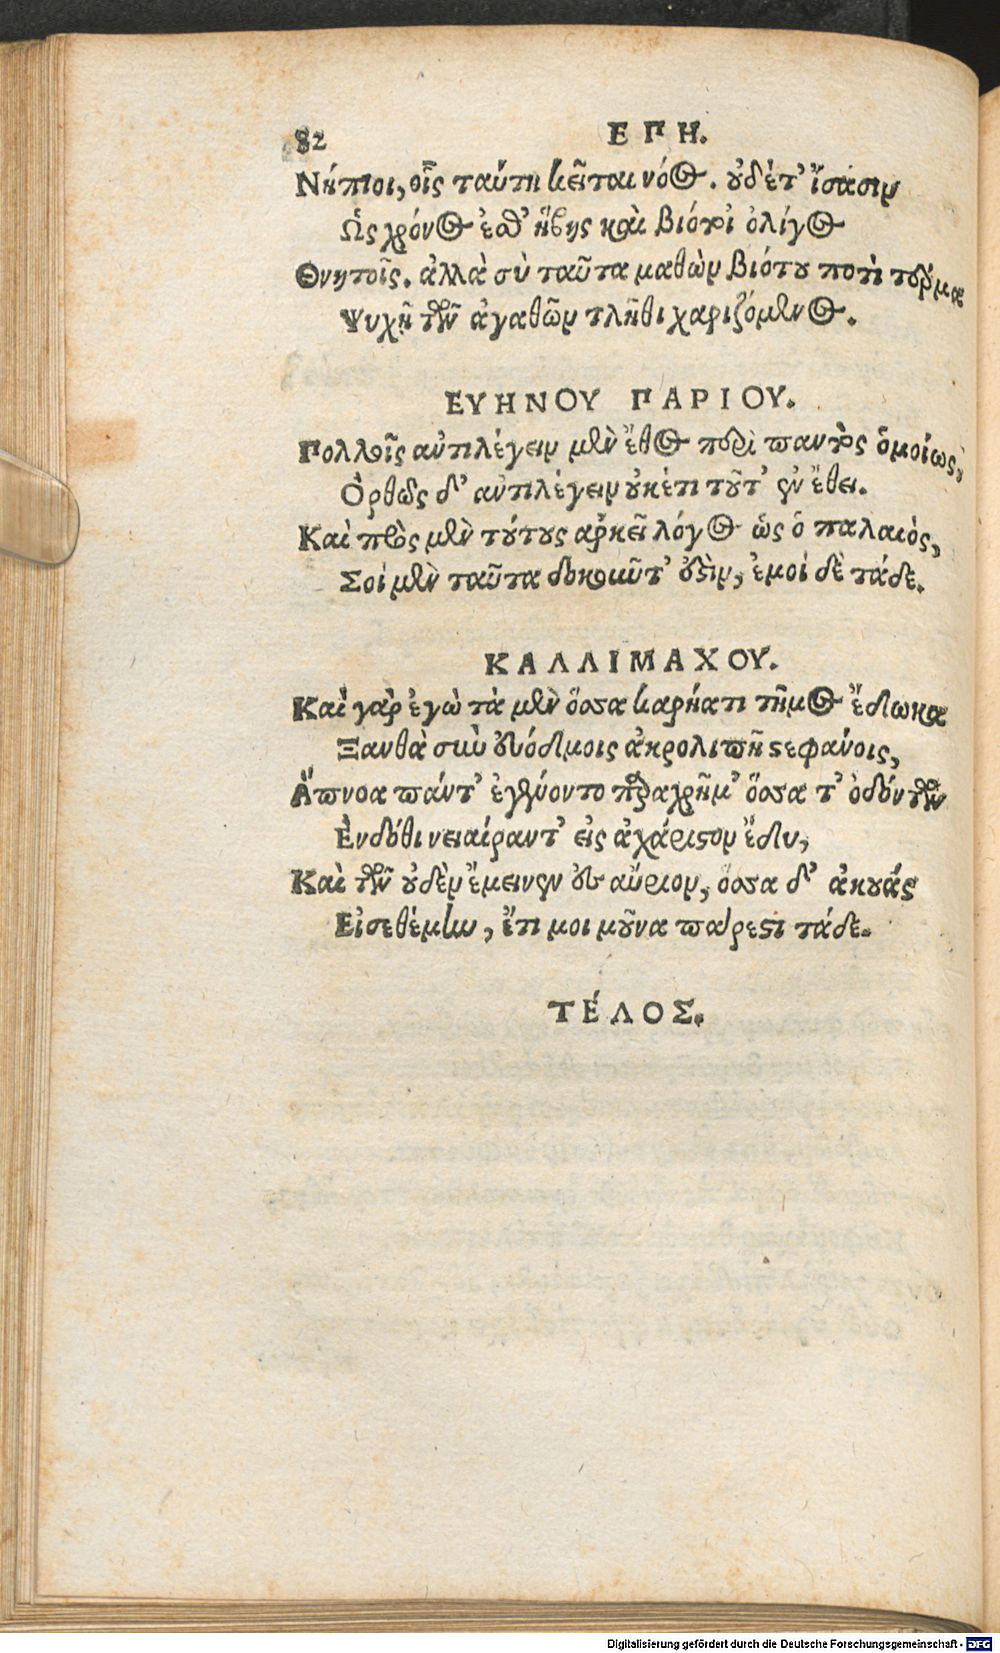 82 ΕΠΗ.
Νήπιοι, οἷς ταύτῃ κεῖται νόος. οὐδέ τ' ἴσασιν
Ὡς χρόνος ἐσθ' ἥβης καὶ βιότοι ὀλίγος
Θνητοῖς. ἀλλὰ σὺ ταῦτα μαθὼν βιότου ποτὶ τέρμα
Ψυχῇ τῶν ἀγαθῶν τλῆθι χαριζόμενος.
ΕΥΗΝΟΥ ΠΑΡΙΟΥ.
Πολλοῖς ἀντιλέγειν μὲν ἔθος περὶ παντὸς ὁμοίως,
Ὀρθῶς δ' ἀντιλέγειν οὐκέτι τοῦτ' ἐν ἔθει.
Καὶ πρὸς μὲν τούτους ἀρκεῖ λόγος ὡς ὁ παλαιὸς,
Σοί μὲν ταῦτα δοκοιῦτ' ἐστὶν, ἐμοί δὲ τάδε.
ΚΑΛΛΙΜΑΧΟΥ.
Καὶ γὰρ ἐγὼ τὰ μὲν ὅσσα καρήατι τῆμος ἔδωκα
Ξανθὰ σὺν εὐόδμοις ἁκρολιπῆ στεφάνοις,
Ἄπνοα πάντ' ἐγένοντο παραχρῆμ' ὅσσα τ' ὀδόντων
Ἐνδόθι νειαίραντ' εἰς ἀχάριστον ἔδυ,
Καὶ τῶν οὐδὲν ἔμεινεν ἐς αὔριον, ὅσσα δ' ἀκουάς
Εἰσεθέμην, ἔτι μοι μοῦνα πάρεστι τάδε.
ΤΈΛΟΣ.
Digitalisierung gefördert durch die Deutsche Forschungsgemeinschaft - DFG